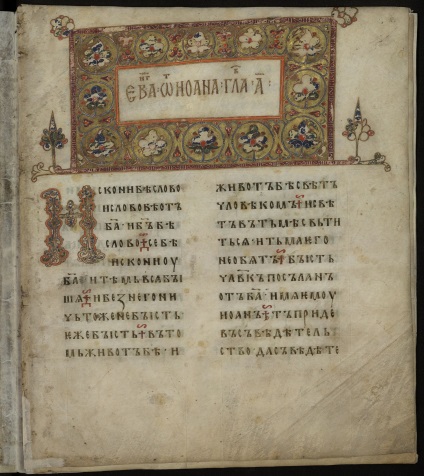 ЕВ҃А ѾИОАНА·ГЛА·А҃:
ИСКОНИБѢСЛОВО
ИСЛОВОБѢОТЪ
Б҃А·ИБ҃ЪБѢ
СЛОВО·СЕБѢ
ИСКОНИОУ
Б҃А·ИТѢМЬВЬСАБЫ
ША·ИБЕЗНЕГОНИ
ЧЬТОЖЕНЕБЫСТЬ·
ѤЖЕБЫСТЬ·ВЪТО
МЬЖИВОТЪБѢ·И
ЖИВОТЪБѢСВѢТЪ
ЧЛОВѢКОМЪ·ИСВѢ
ТЪВЪТЬМѢСВЬТИ
ТЬСѦ·ИТЬМАѤГО
НЕОБѦТЪ·БЫСТЬ
ЧЛ҃ВКЪПОСЪЛАНЪ
ОТЪБ҃А·ИМѦѤМОУ
ИОАНЪ·ТЪПРИДЕ
ВЪСЪВѢДѢТЕЛЬ
СТВО·ДАСЪВѢДѢТЕ